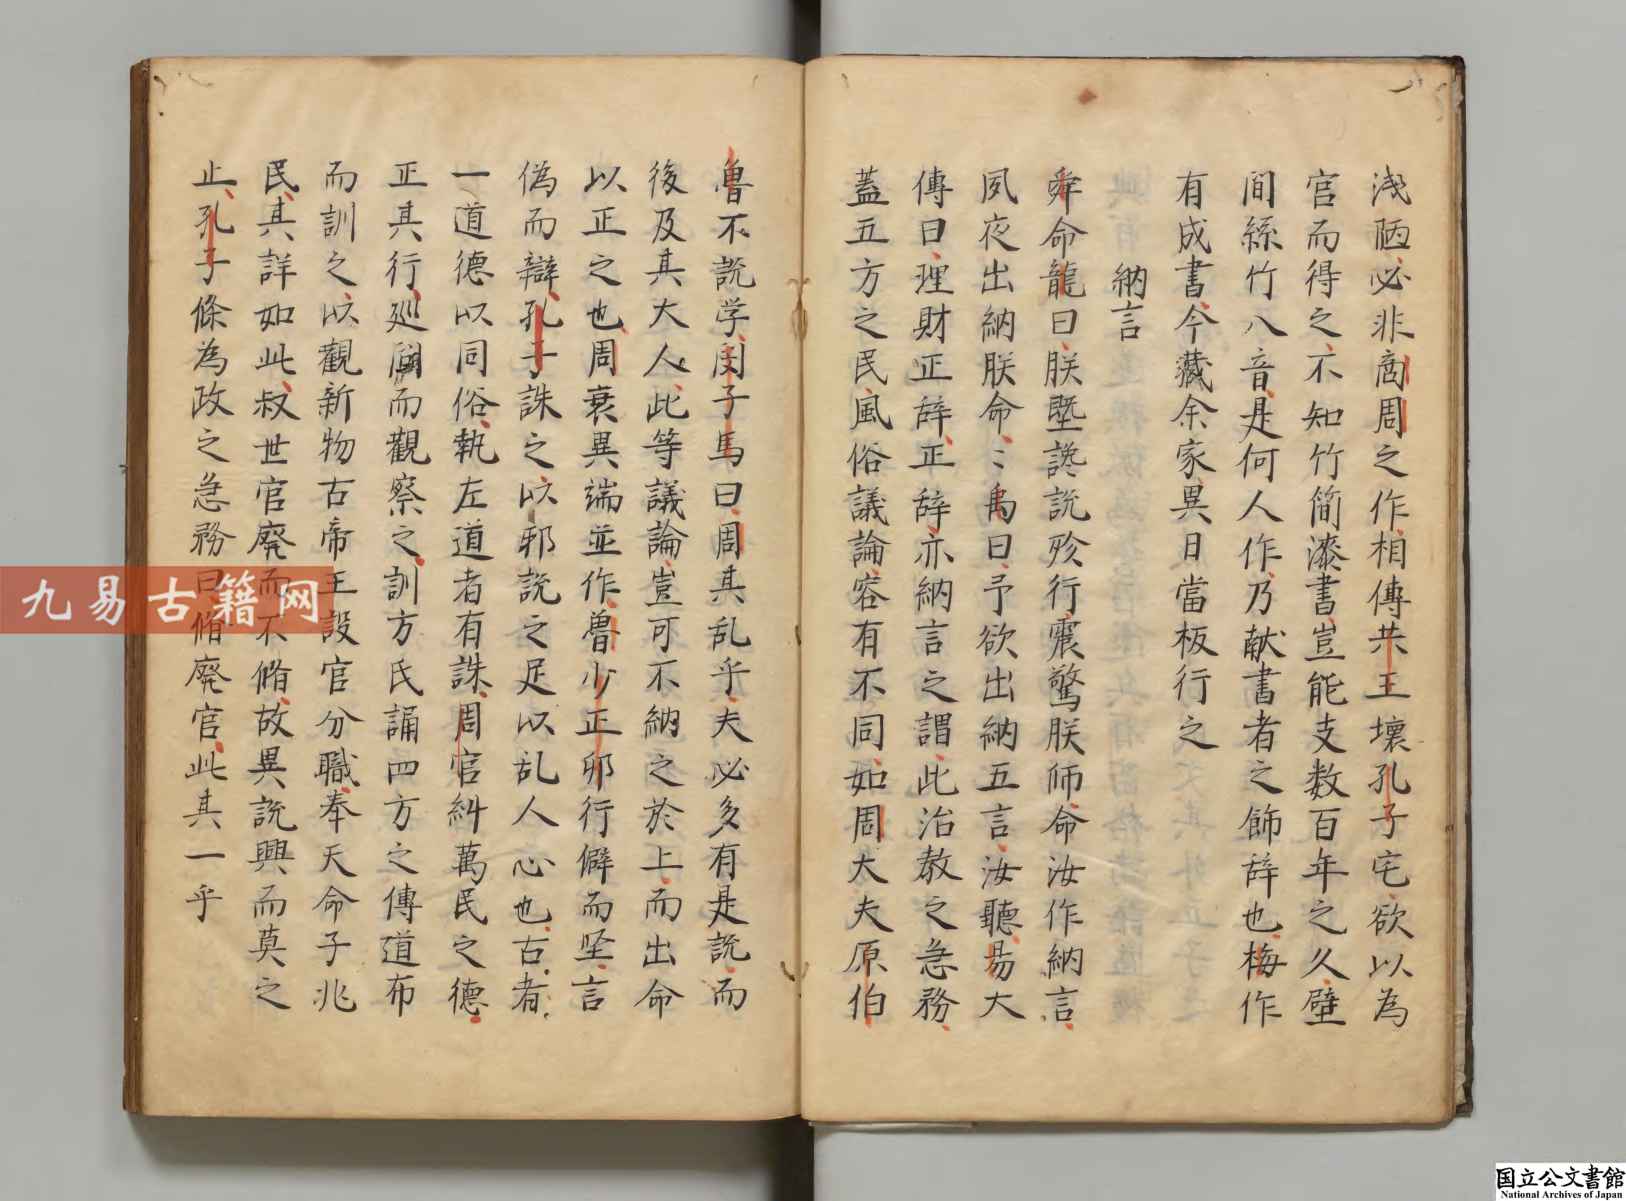 浅陋必非商周之作相傳共王壞孔子宅欲以為
官而得之不知竹簡漆書豈能支数百年之久壁
間絲竹八音是何人作乃献書者之飾辞也梅作
有成書今藏余家異日當板行之
納言
舜命龍曰朕堲讒説殄行震驚朕師命汝作納言
夙夜出納朕命〻禹曰予欲出納五言汝聽易大
傳曰理財正辞正辞亦納言之謂此治教之急務
蓋五方之民風俗議論容有不同如周大夫原伯
魯不說学閔子馬曰周其乱乎夫必多有是説而
後及其大人此等議論豈可不納之於上而出命
以正之也周衰異端並作魯少正卯行僻而坚言
偽而辯孔子誅之以邪説之足以乱人心也古者
一道德以同俗執左道者有誅周官糾萬民之德
正其行巡國而觀察之訓方氏誦四方之傳道布
而訓之以觀新物古帝王設官分職奉天命子兆
民其詳如此叔世官廃而不脩故異説興而莫之
止孔子條為政之急務曰脩廃官此其一乎
九易古籍网
国立公文書館
National Archives of Japan